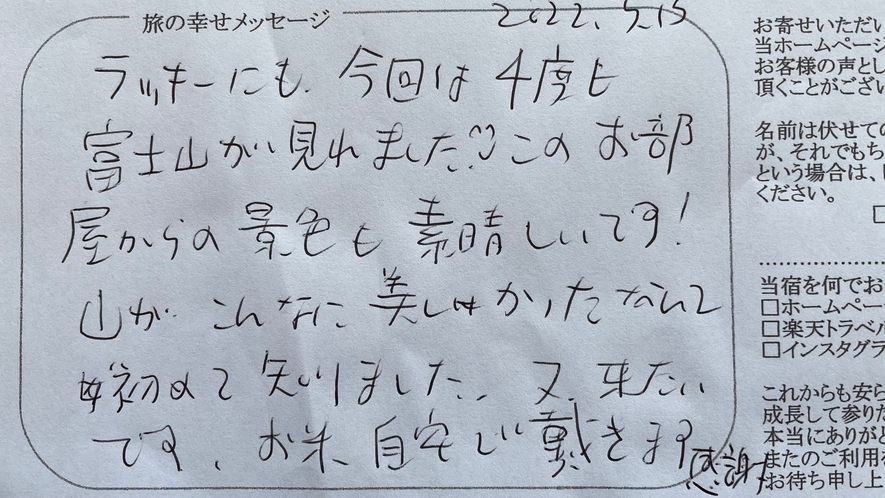 旅の幸せメッセージ
2022.5.15
ラッキーにも、今回は4度も
富士山が見れました♡このお部
屋からの景色も素晴しいです!
山がこんなに美しかったなんて
初めて知りました、又、来たい
です、お米、自宅で戴きます
感謝
お寄せいただい
当ホームページ
お客様の声とし
頂くことがござい
名前は伏せての
が、それでもち
という場合は、
ください。
□
当宿を何でお
□ホームペー
□楽天トラベル
□インスタグラ
これからも安ら
成長して参りた
本当にありがと
またのご利用を
お待ち申し上